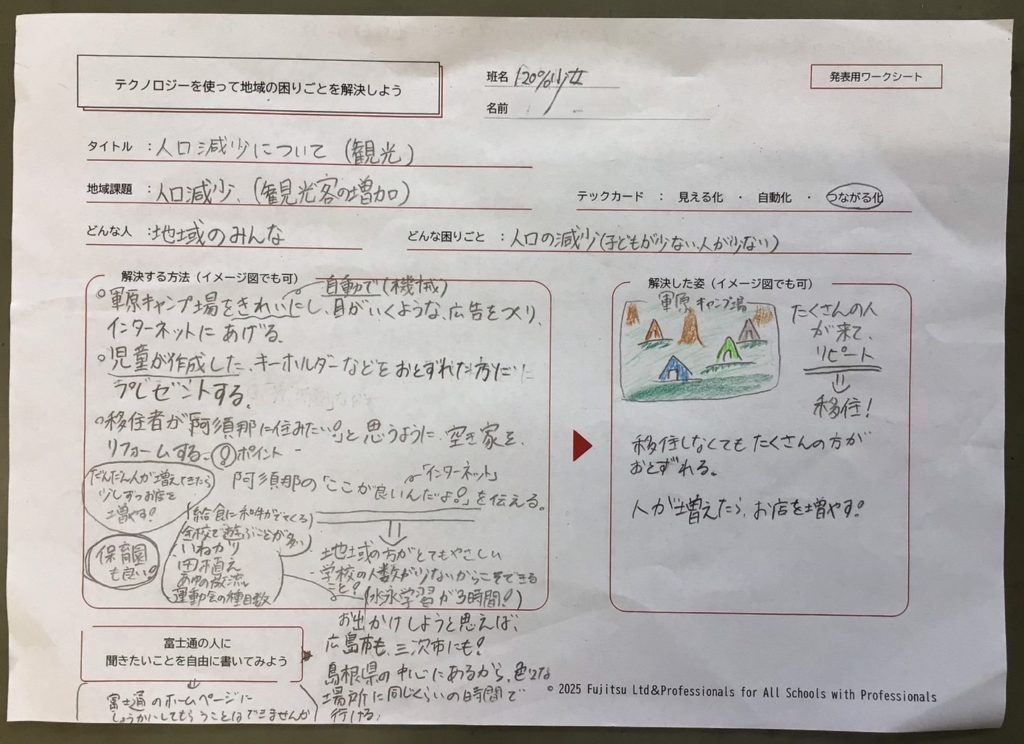 テクノロジーを使って地域の困りごとを解決しよう
班名 120%少女
名前
発表用ワークシート
タイトル ：人口減少について (観光)
地域課題 ：人口減少、(観光客の増加)
テックカード ： 見える化 ・ 自動化 ・ つながる化
どんな人 ：地域のみんな
どんな困りごと ：人口の減少(子どもが少ない人が少ない)
解決する方法（イメージ図でも可）
自動で(機械)
○軍原キャンプ場をきれいにし、目がいくような、広告をつくり、
インターネットにあげる。
○児童が作成した、キーホルダーなどをおとずれた方に
プレゼントする。
○移住者が「阿須那に住みたい!」と思うように、空き家を、
リフォームする。
ポイント
「インターネット」
阿須那の「ここが良いんだよ!」を伝える。
だんだん人が増えてきたら
少しずつお店を
増やす!
保育園
も良い!
(給食に和牛がでてくる)
全校で遊ぶことが多い
いねかり
田植え
あゆの放流
運動会の種目数
地域の方がとてもやさしい
学校の人数が少ないからこそできる
こと!
(水泳学習が3時間!)
お出かけしようと思えば、
広島市も、三次市にも!
島根県の中心にあるから、色々な
場所に同じくらいの時間で
行ける!
富士通の人に
聞きたいことを自由に書いてみよう
富士通のホームページに
しょうかいしてもらうことはできませんか
解決した姿（イメージ図でも可）
軍原キャンプ場
たくさんの人
が来て、
リピート
移住!
移住しなくてもたくさんの方が
おとずれる。
人が増えたら、お店を増やす!
© 2025 Fujitsu Ltd&Professionals for All Schools with Professionals